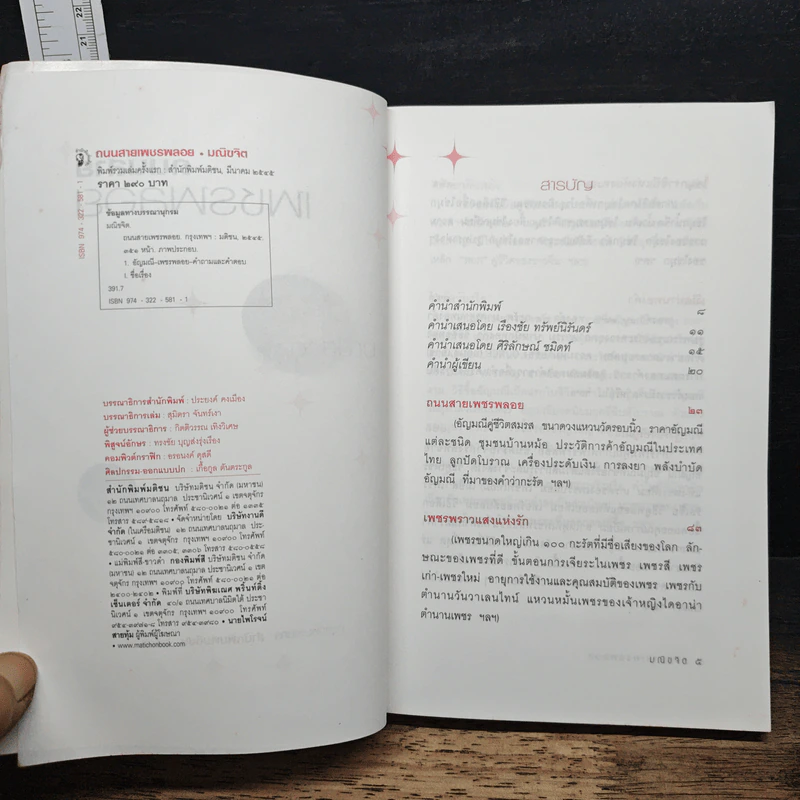 22
21
ถนนสายเพชรพลอย • มณิขจิต
พิมพ์รวมเล่มครั้งแรก : สำนักพิมพ์มติชน, มีนาคม ๒๕๔๕
ราคา ๒๙๐ บาท
ISBN 974 - 322 - 581 - 1
ข้อมูลทางบรรณานุกรม
มณิขจิต
ถนนสายเพชรพลอย. กรุงเทพฯ : มติชน, ๒๕๔๕.
๓๕๑ หน้า. ภาพประกอบ.
1. อัญมณี-เพชรพลอย-คำถามและคำตอบ
I. ชื่อเรื่อง
391.7
ISBN 974 - 322 - 581 - 1
บรรณาธิการสำนักพิมพ์ : ประยงค์ คงเมือง
บรรณาธิการเล่ม : สุมิตรา จันทร์เงา
ผู้ช่วยบรรณาธิการ : กิตติวรรณ เทิงวิเศษ
พิสูจน์อักษร : ทรงชัย บุญส่งรุ่งเรือง
คอมพิวต์กราฟิก : อรอนงค์ ดุสดี
ศิลปกรรม-ออกแบบปก : เกื้อกูล ตันตระกูล
สำนักพิมพ์มติชน บริษัทมติชน จำกัด (มหาชน)
๑๒ ถนนเทศบาลนฤมาล ประชานิเวศน์ ๑ เขตจตุจักร
กรุงเทพฯ ๑๐๙๐๐ โทรศัพท์ ๕๘๐-๐๐๒๑ ต่อ ๑๓๓๕
โทรสาร ๕๘๙-๕๘๑๘ • จัดจำหน่ายโดย บริษัทงานดี
จำกัด (ในเครือมติชน) ๑๒ ถนนเทศบาลนฤมาล ประชา
นิเวศน์ ๑ เขตจตุจักร กรุงเทพฯ ๑๐๙๐๐ โทรศัพท์
๕๘๐-๐๐๒๑ ต่อ ๓๓๐๕, ๓๓๐๖ โทรสาร ๕๘๐-๕๕๕๘
• แม่พิมพ์สี-ขาวดำ กองพิมพ์สี บริษัทมติชน จำกัด
(มหาชน) ๑๒ ถนนเทศบาลนฤมาล ประชานิเวศน์ ๑ เขต
จตุจักร กรุงเทพฯ ๑๐๙๐๐ โทรศัพท์ ๕๘๐-๐๐๒๑ ต่อ
๒๔๐๐-๒๔๐๒ • พิมพ์ที่ บริษัทพิฆเณศ พริ้นท์ติ้ง
เซ็นเตอร์ จำกัด ๔๐/๑ ถนนเทศบาลนิมิตใต้ ประชา
นิเวศน์ ๑ เขตจตุจักร กรุงเทพฯ ๑๐๙๐๐ โทรศัพท์
๙๕๔-๓๙๗๑-๘ โทรสาร ๙๕๔-๓๙๘๐ • นายไพโรจน์
สายหุ้ม ผู้พิมพ์ผู้โฆษณา
• www.matichonbook.com
สารบัญ
คำนำสำนักพิมพ์ ๘
คำนำเสนอโดย เรืองชัย ทรัพย์นิรันดร์ ๑๑
คำนำเสนอโดย ศิริลักษณ์ ชมิดท์ ๑๕
คำนำผู้เขียน ๒๐
ถนนสายเพชรพลอย ๒๓
(อัญมณีคู่ชีวิตสมรส ขนาดวงแหวนวัดรอบนิ้ว ราคาอัญมณี
แต่ละชนิด ชุมชนบ้านหม้อ ประวัติการค้าอัญมณีในประเทศ
ไทย ลูกปัดโบราณ เครื่องประดับเงิน การลงยา พลังบำบัด
อัญมณี ที่มาของคำว่ากะรัต ฯลฯ)
เพชรพราวแสงแห่งรัก ๘๓
(เพชรขนาดใหญ่เกิน ๑๐๐ กะรัตที่มีชื่อเสียงของโลก ลัก-
ษณะของเพชรที่ดี ขั้นตอนการเจียระไนเพชร เพชรสี เพชร
เก่า-เพชรใหม่ อายุการใช้งานและคุณสมบัติของเพชร เพชรกับ
ตำนานวันวาเลนไทน์ แหวนหมั้นเพชรของเจ้าหญิงไดอาน่า
ตำนานเพชร ฯลฯ)
๕